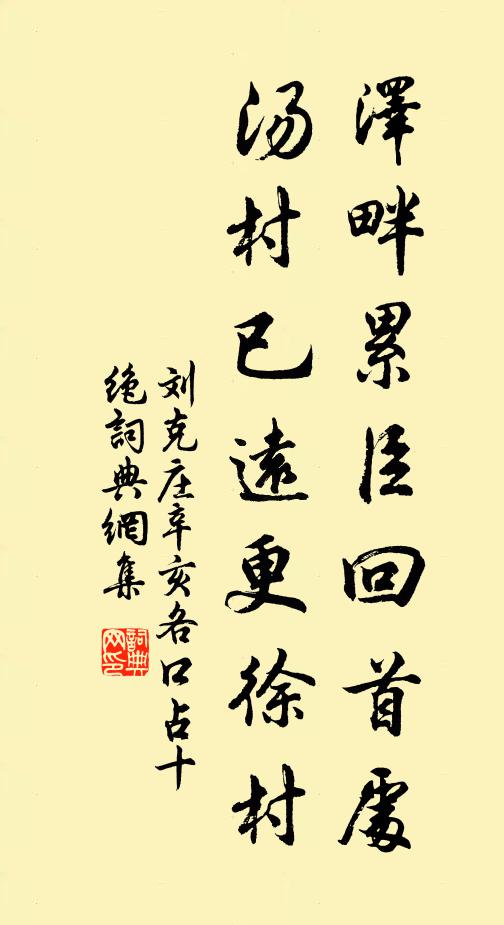 澤畔累臣回首處
汤村已遠更徐村
刘克庄辛亥各口占十
绝詞典網集
詞典
网印